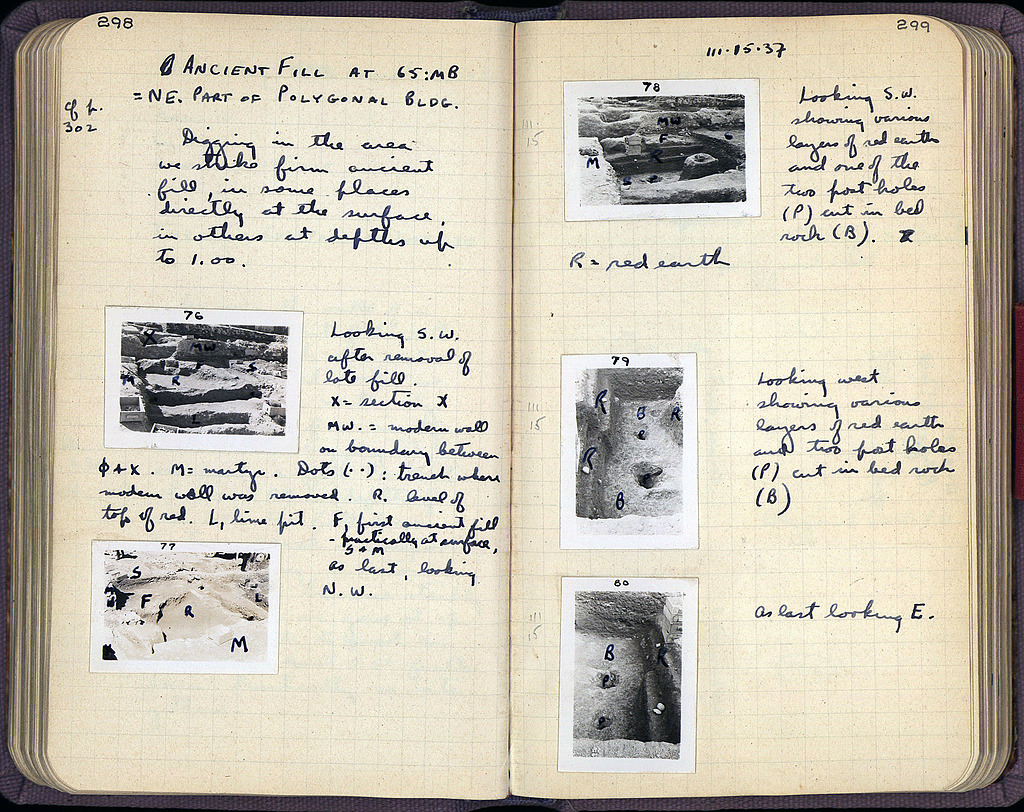 298
ANCIENT FILL AT 65:MB
= NE. PART OF POLYGONAL BLDG.
cf p.
302
Digging in the area
we strike firm ancient
fill, in some places
directly at the surface,
in others at depths up
to 1.00.
76
X MW
M R S
L
Looking S.W.
after removal of
late fill.
X = section X
MW. = modern wall
on boundary between
Φ + X. M = martyr. Dots (··): trench where
modern wall was removed. R. level of
top of red. L, lime pit. F, first ancient fill
- practically at surface,
S + M
77
S
F R L
M
as last, looking
N.W.
299
III-15-37
III
15
78
MW
F
M R
Looking S.W.
showing various
layers of red earth
and one of the
two post holes
(P) cut in bed
rock (B).
R = red earth
III
15
79
R B R
R
B
Looking west
showing various
layers of red earth
and two post holes
(P) cut in bed rock
(B)
III
15
80
B R
P
as last looking E.